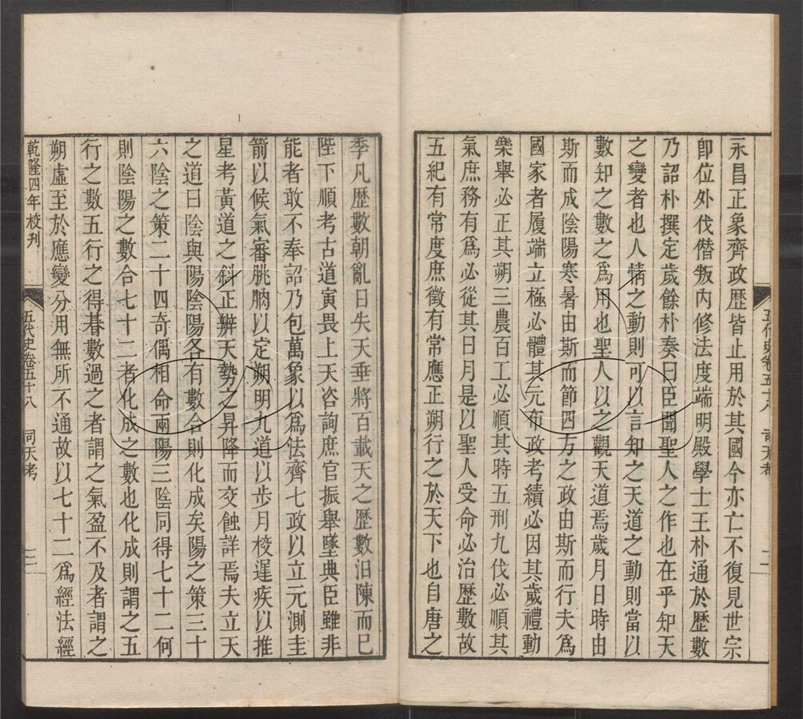 永昌正象齊政歷皆止用於其國今亦亡不復見世宗
卽位外伐僭叛內修法度端明殿學士王朴通於歷數
乃詔朴撰定歲餘朴奏曰臣聞聖人之作也在乎知天
之變者也人情之動則可以言知之天道之動則當以
數知之數之爲用也聖人以之觀天道焉歲月日時由
斯而成陰陽寒暑由斯而節四方之政由斯而行夫爲
國家者履端立極必體其元布政考績必因其歲禮動
樂舉必正其朔三農百工必順其時五刑九伐必順其
氣庶務有爲必從其日月是以聖人受命必治歷數故
五紀有常度庶徵有常應正朔行之於天下也自唐之
五代史卷五十八 司天考 二
季凡歷數朝亂日失天垂將百載天之歷數汨陳而已
陛下順考古道寅畏上天咨詢庶官振舉墜典臣雖非
能者敢不奉詔乃包萬象以爲法齊七政以立元測圭
箭以候氣審朓朒以定朔明九道以步月校遲疾以推
星考黃道之斜正辨天勢之昇降而交蝕詳焉夫立天
之道曰陰與陽陰陽各有數合則化成矣陽之策三十
六陰之策二十四奇偶相命兩陽三陰同得七十二何
則陰陽之數合七十二者化成之數也化成則謂之五
行之數五行之得朞數過之者謂之氣盈不及者謂之
朔虛至於應變分用無所不通故以七十二爲經法經
乾隆四年校刊 五代史卷五十八 司天考 三